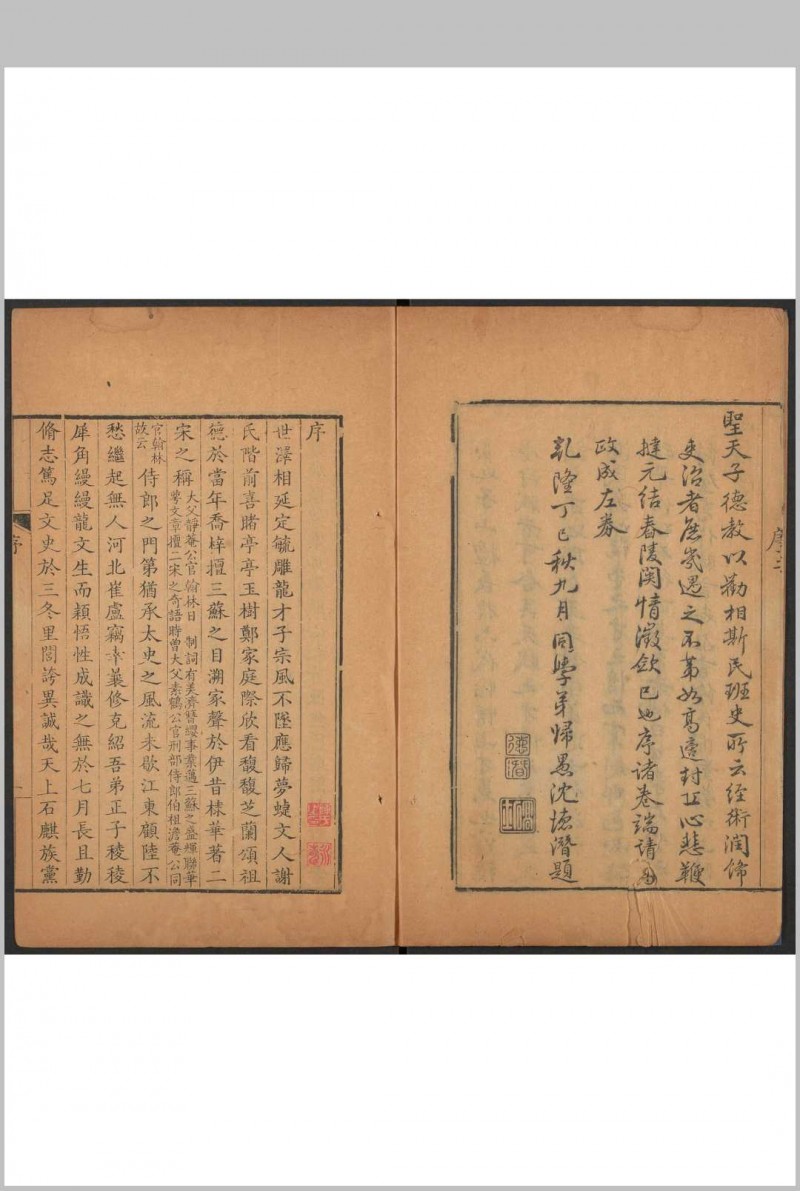 聖天子德教以勸相斯民班史所云經術潤飾
吏治者庶幾遇之不第如高適封丘心悲鞭
撻元結舂陵関情瀲欿已也序諸卷端請
政成左券
乾隆丁巳秋九月同學弟歸愚沈德潛題
序
世澤相延定毓雕龍才子宗風不墜應歸夢蜨文人謝
氏階前喜睹亭亭玉樹鄭家庭際欣看馥馥芝蘭頌祖
德於當年喬梓擅三蘇之目溯家聲於伊昔棣華著二
宋之稱大父靜菴公官翰林日制詞有美濟簪纓事業邁三蘇之盛輝聯華
萼文章擅二宋之奇語時曾大父素鶴公官刑部侍郎伯祖澹菴公同
官翰林
故云侍郎之門第猶承太史之風流未歇江東顧陸不
愁繼起無人河北崔盧竊幸葺修克紹吾弟正子稜稜
犀角縵縵龍文生而穎悟性成識之無於七月長且勤
脩志篤足文史於三冬里閭誇異誠哉天上石麒族黨
序
一